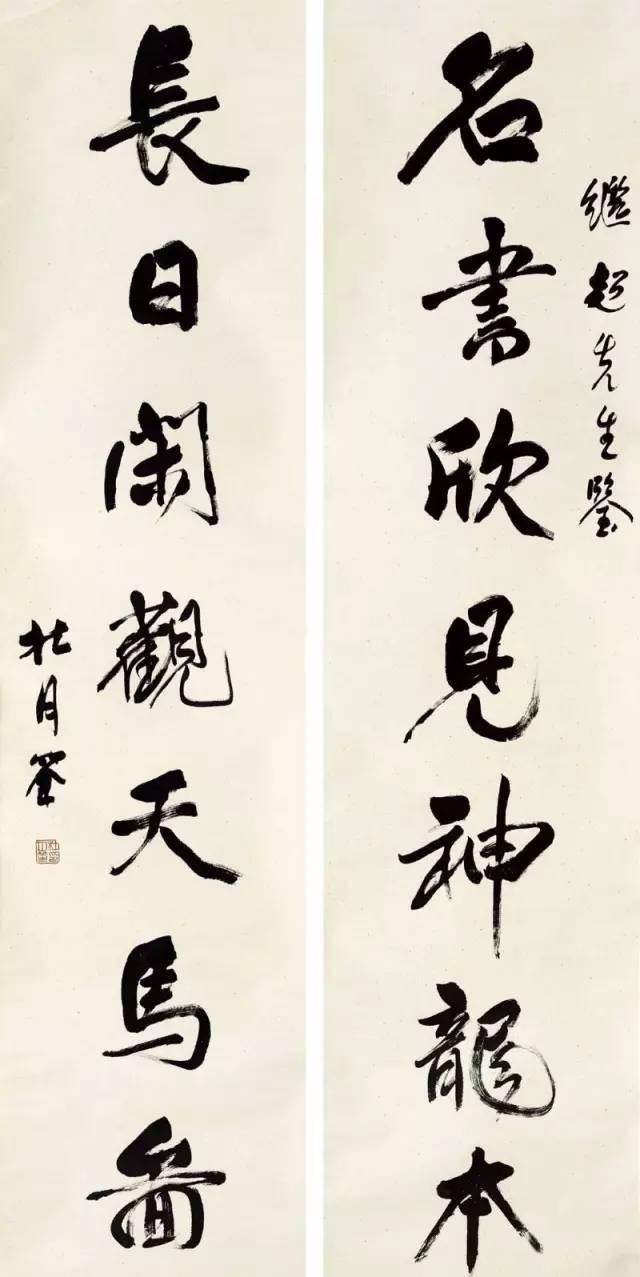 繼超先生鑒
名書欣見神龍本
長日閑觀天馬圖
杜月笙